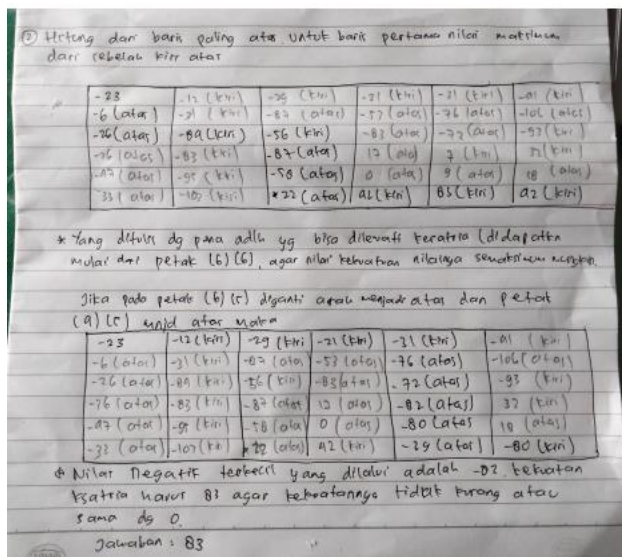 ② Hitung dari baris paling atas. Untuk baris pertama nilai maksimum
dari sebelah kiri atas
-23 -12 (kiri) -29 (kiri) -21 (kiri) -31 (kiri) -91 (kiri)
-6 (atas) -31 (kiri) -87 (atas) -53 (atas) -76 (atas) -106 (atas)
-26 (atas) -89 (kiri) -56 (kiri) -83 (atas) -72 (atas) -93 (kiri)
-76 (atas) -83 (kiri) -87 (atas) 12 (atas) 7 (kiri) (kiri)
-97 (atas) -95 (kiri) -58 (atas) 0 (atas) 9 (atas) 18 (atas)
-33 (atas) -107 (kiri) *22 (atas) 92 (kiri) 83 (kiri) 92 (kiri)
* Yang ditulis dg pena adlh yg bisa dilewati keratria (didapatkn
mulai dari petak (6)(6), agar nilai kekuatan nilainya semaksimum mungkin.
Jika pada petak (6)(5) diganti arah menjadi atas dan petak
(4)(5) mnjd atas maka
-23 -12 (kiri) -29 (kiri) -21 (kiri) -31 (kiri) -91 (kiri)
-6 (atas) -31 (kiri) -87 (atas) -53 (atas) -76 (atas) -106 (atas)
-26 (atas) -89 (kiri) -56 (kiri) -83 (atas) -72 (atas) -93 (kiri)
-76 (atas) -83 (kiri) -87 (atas) 12 (atas) -82 (atas) 32 (kiri)
-97 (atas) -95 (kiri) -58 (atas) 0 (atas) -80 (atas) 18 (atas)
-33 (atas) -107 (kiri) *22 (atas) 92 (kiri) -29 (atas) -80 (kiri)
* Nilai negatif terkecil yang dilalui adalah -82. kekuatan
ksatria harus 83 agar kekuatannya tidak kurang atau
sama dg 0.
Jawaban : 83